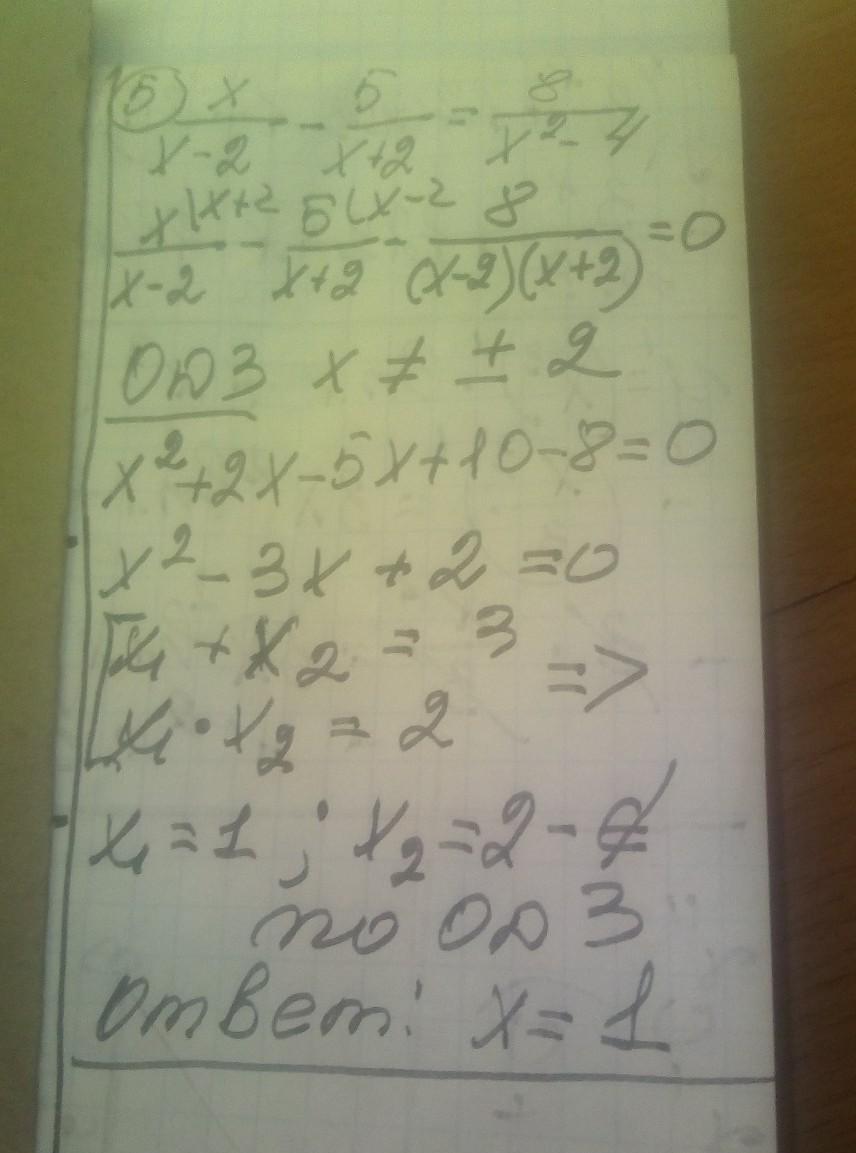 5) x/(x-2) - 5/(x+2) = 8/(x²-4)
x\x+2/(x-2) - 5\x-2/(x+2) - 8/((x-2)(x+2)) = 0
ОДЗ x ≠ ± 2
x²+2x-5x+10-8=0
x²-3x+2=0
[x₁+x₂=3
[x₁·x₂=2 =>
x₁=1; x₂=2-∉
по ОДЗ
Ответ: x=1